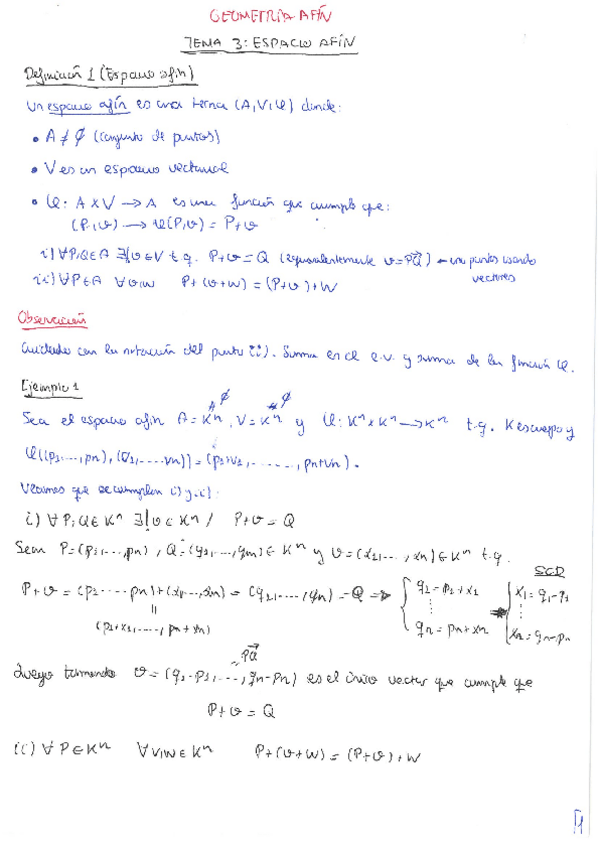 GEOMETRÍA AFÍN
TEMA 3: ESPACIO AFÍN
Definición 1 (Espacio afín)
Un espacio afín es una terna (A,V,φ) donde:
• A ≠ ∅ (conjunto de puntos)
• V es un espacio vectorial
• φ: A x V → A es una función que cumple que:
(P,v) → φ(P,v) = P+v
i) ∀P,Q∈A ∃!v∈V t.q. P+v=Q (equivalentemente v=PQ⃗) ← une puntos usando
vectores
ii) ∀P∈A ∀v,w P+(v+w)=(P+v)+w
Observación
Cuidado con la notación del punto ii). Suma en el e.v. y suma de la función φ.
Ejemplo 1
Sea el espacio afín A=Kⁿ, V=Kⁿ y φ: KⁿxKⁿ → Kⁿ t.q. K es cuerpo y
≠∅ ≠∅
φ((p₁,...,pn),(v₁,....vn))=(p₁+v₁,......,pn+vn).
Veamos que se cumplen i) y ii):
i) ∀P,Q∈Kⁿ ∃!v∈Kⁿ / P+v=Q
Sean P=(p₁,...,pn), Q=(q₁,...,qn)∈Kⁿ y v=(x₁,...,xn)∈Kⁿ t.q.
SCD
P+v=(p₁....pn)+(x₁,...,xn)=(q₁,...,qn)=Q ⇒ { q₁=p₁+x₁ ⋮ qn=pn+xn ⇒ { x₁=q₁-p₁ ⋮ xn=qn-pn
=
(p₁+x₁,....,pn+xn)
=PQ⃗
Luego tomando v=(q₁-p₁,...,qn-pn) es el único vector que cumple que
P+v=Q
ii) ∀P∈Kⁿ ∀v,w∈Kⁿ P+(v+w)=(P+v)+w
1